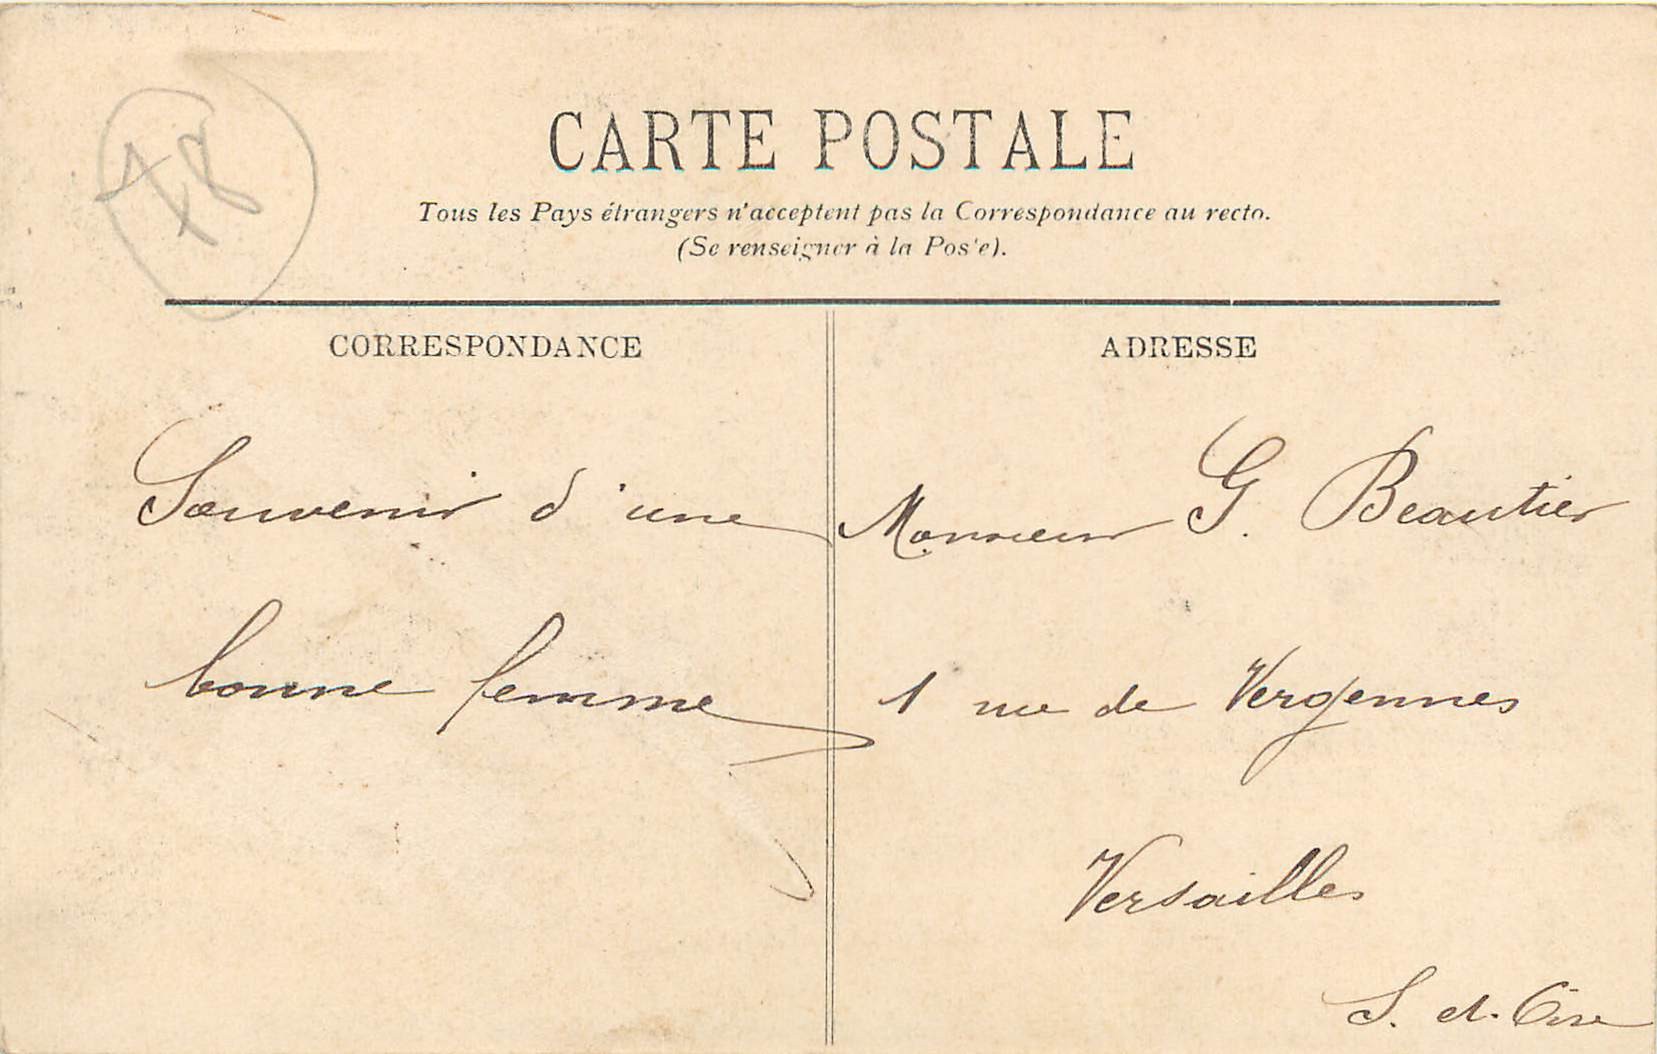 78
CARTE POSTALE
Tous les Pays étrangers n'acceptent pas la Correspondance au recto.
(Se renseigner à la Pos'e).
CORRESPONDANCE
Souvenir d'une
bonne femme
ADRESSE
Monsieur G. Beautier
1 rue de Vergennes
Versailles
S. et. Oise